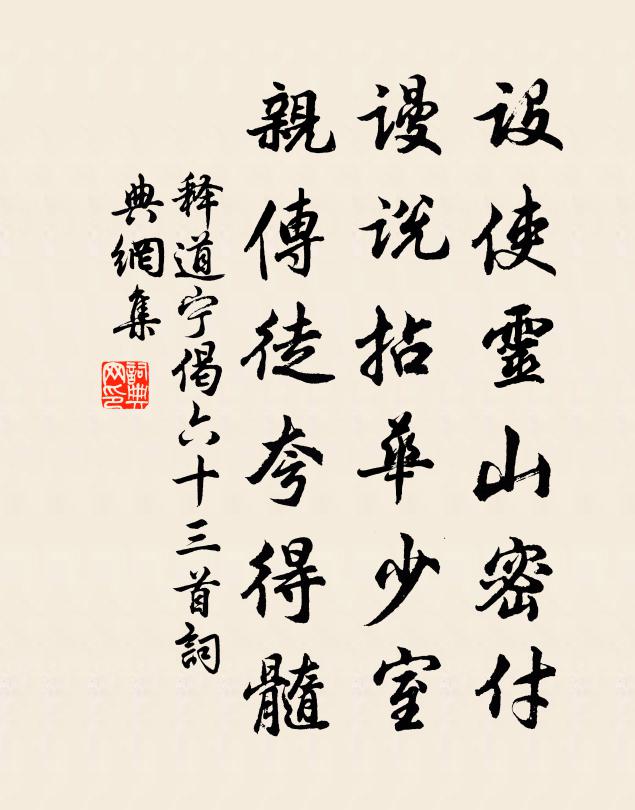 設使靈山密付
謾説拈華少室
親傳徒夸得髓
释道宁偈六十三首詞
典網集
詞典网印